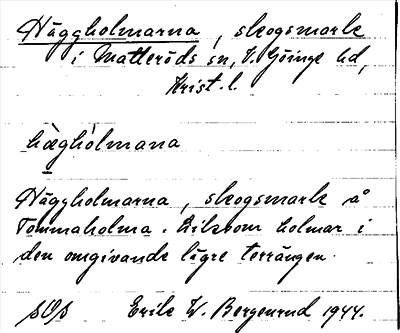 Häggholmarna, skogsmark
i Matteröds sn, V. Göinge hd,
Krist. l.
hæ̀ghòlmana
Häggholmarna, skogsmark å
Tommaholma. Liksom holmar i
den omgivande lägre terrängen.
SOS Erik W. Bergenrud 1944.